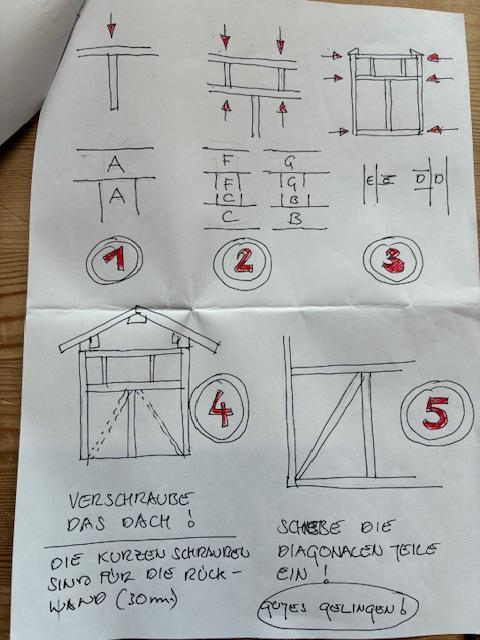 A
A
F G
F G
C B
C B
E E D D
1 2 3
4 5
VERSCHRAUBE
DAS DACH !
DIE KURZEN SCHRAUBEN
SIND FÜR DIE RÜCK-
WAND (30mm)
SCHIEBE DIE
DIAGONALEN TEILE
EIN !
GUTES GELINGEN !